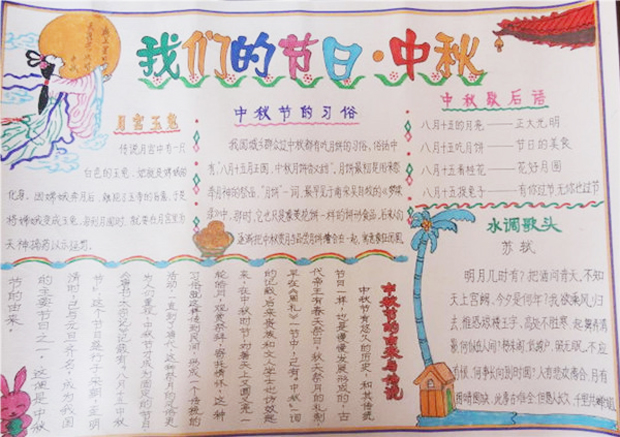 我们的节日·中秋
月宫玉兔
传说月宫中有一只
白色的玉兔,她就是嫦娥的
化身。因嫦娥奔月后,触犯了玉帝的旨意,于是
将嫦娥变成玉兔,每到月圆时,就要在月宫里为
天神捣药以示惩罚。
中秋节的习俗
我国城乡群众过中秋都有吃月饼的习俗,俗话中
有:“八月十五月正圆,中秋月饼香又甜”。月饼最初是用来祭
奉月神的祭品,“月饼”一词,最早见于南宋吴自牧的《梦粱
录》中,那时,它也只是像菱花饼一样的饼形食品,后来人们
逐渐把中秋赏月与品尝月饼结合在一起,寓意家人团圆
中秋歇后语
八月十五的月亮——正大光明
八月十五吃月饼——节日的美食
八月十五看桂花——花好月圆
八月十五捉兔子——有你过节无你也过节
水调歌头
苏轼
明月几时有?把酒问青天。不知
天上宫阙,今夕是何年?我欲乘风归
去,惟恐琼楼玉宇,高处不胜寒,起舞弄清
影,何似在人间?转朱阁,低绮户,照无眠。不应
有恨,何事长向别时圆?人有悲欢离合,月有
阴晴圆缺,此事古难全。但愿人长久,千里共婵娟
中秋节的由来与传说
中秋节有悠久的历史,和其他传统
节日一样,也是慢慢发展形成的,古
代帝王有春天祭日,秋天祭月的礼制,
早在《周礼》一书中,已有“中秋”一词
的记载。后来贵族和文人学士也仿效起
来,在中秋时节,对着天上又亮又
轮皓月,观赏祭拜,寄托情怀,这种
习俗就这样传到民间,形成一个传统的
活动,一直到了唐代,这种祭月的风俗更
为人们重视,中秋节才成为固定的节日,
《唐书·太宗记》记载有“八月十五中秋
节”,这个节日盛行于宋朝,至明
清时,已与元旦齐名,成为我国
的主要节日之一。这便是中秋
节的由来。